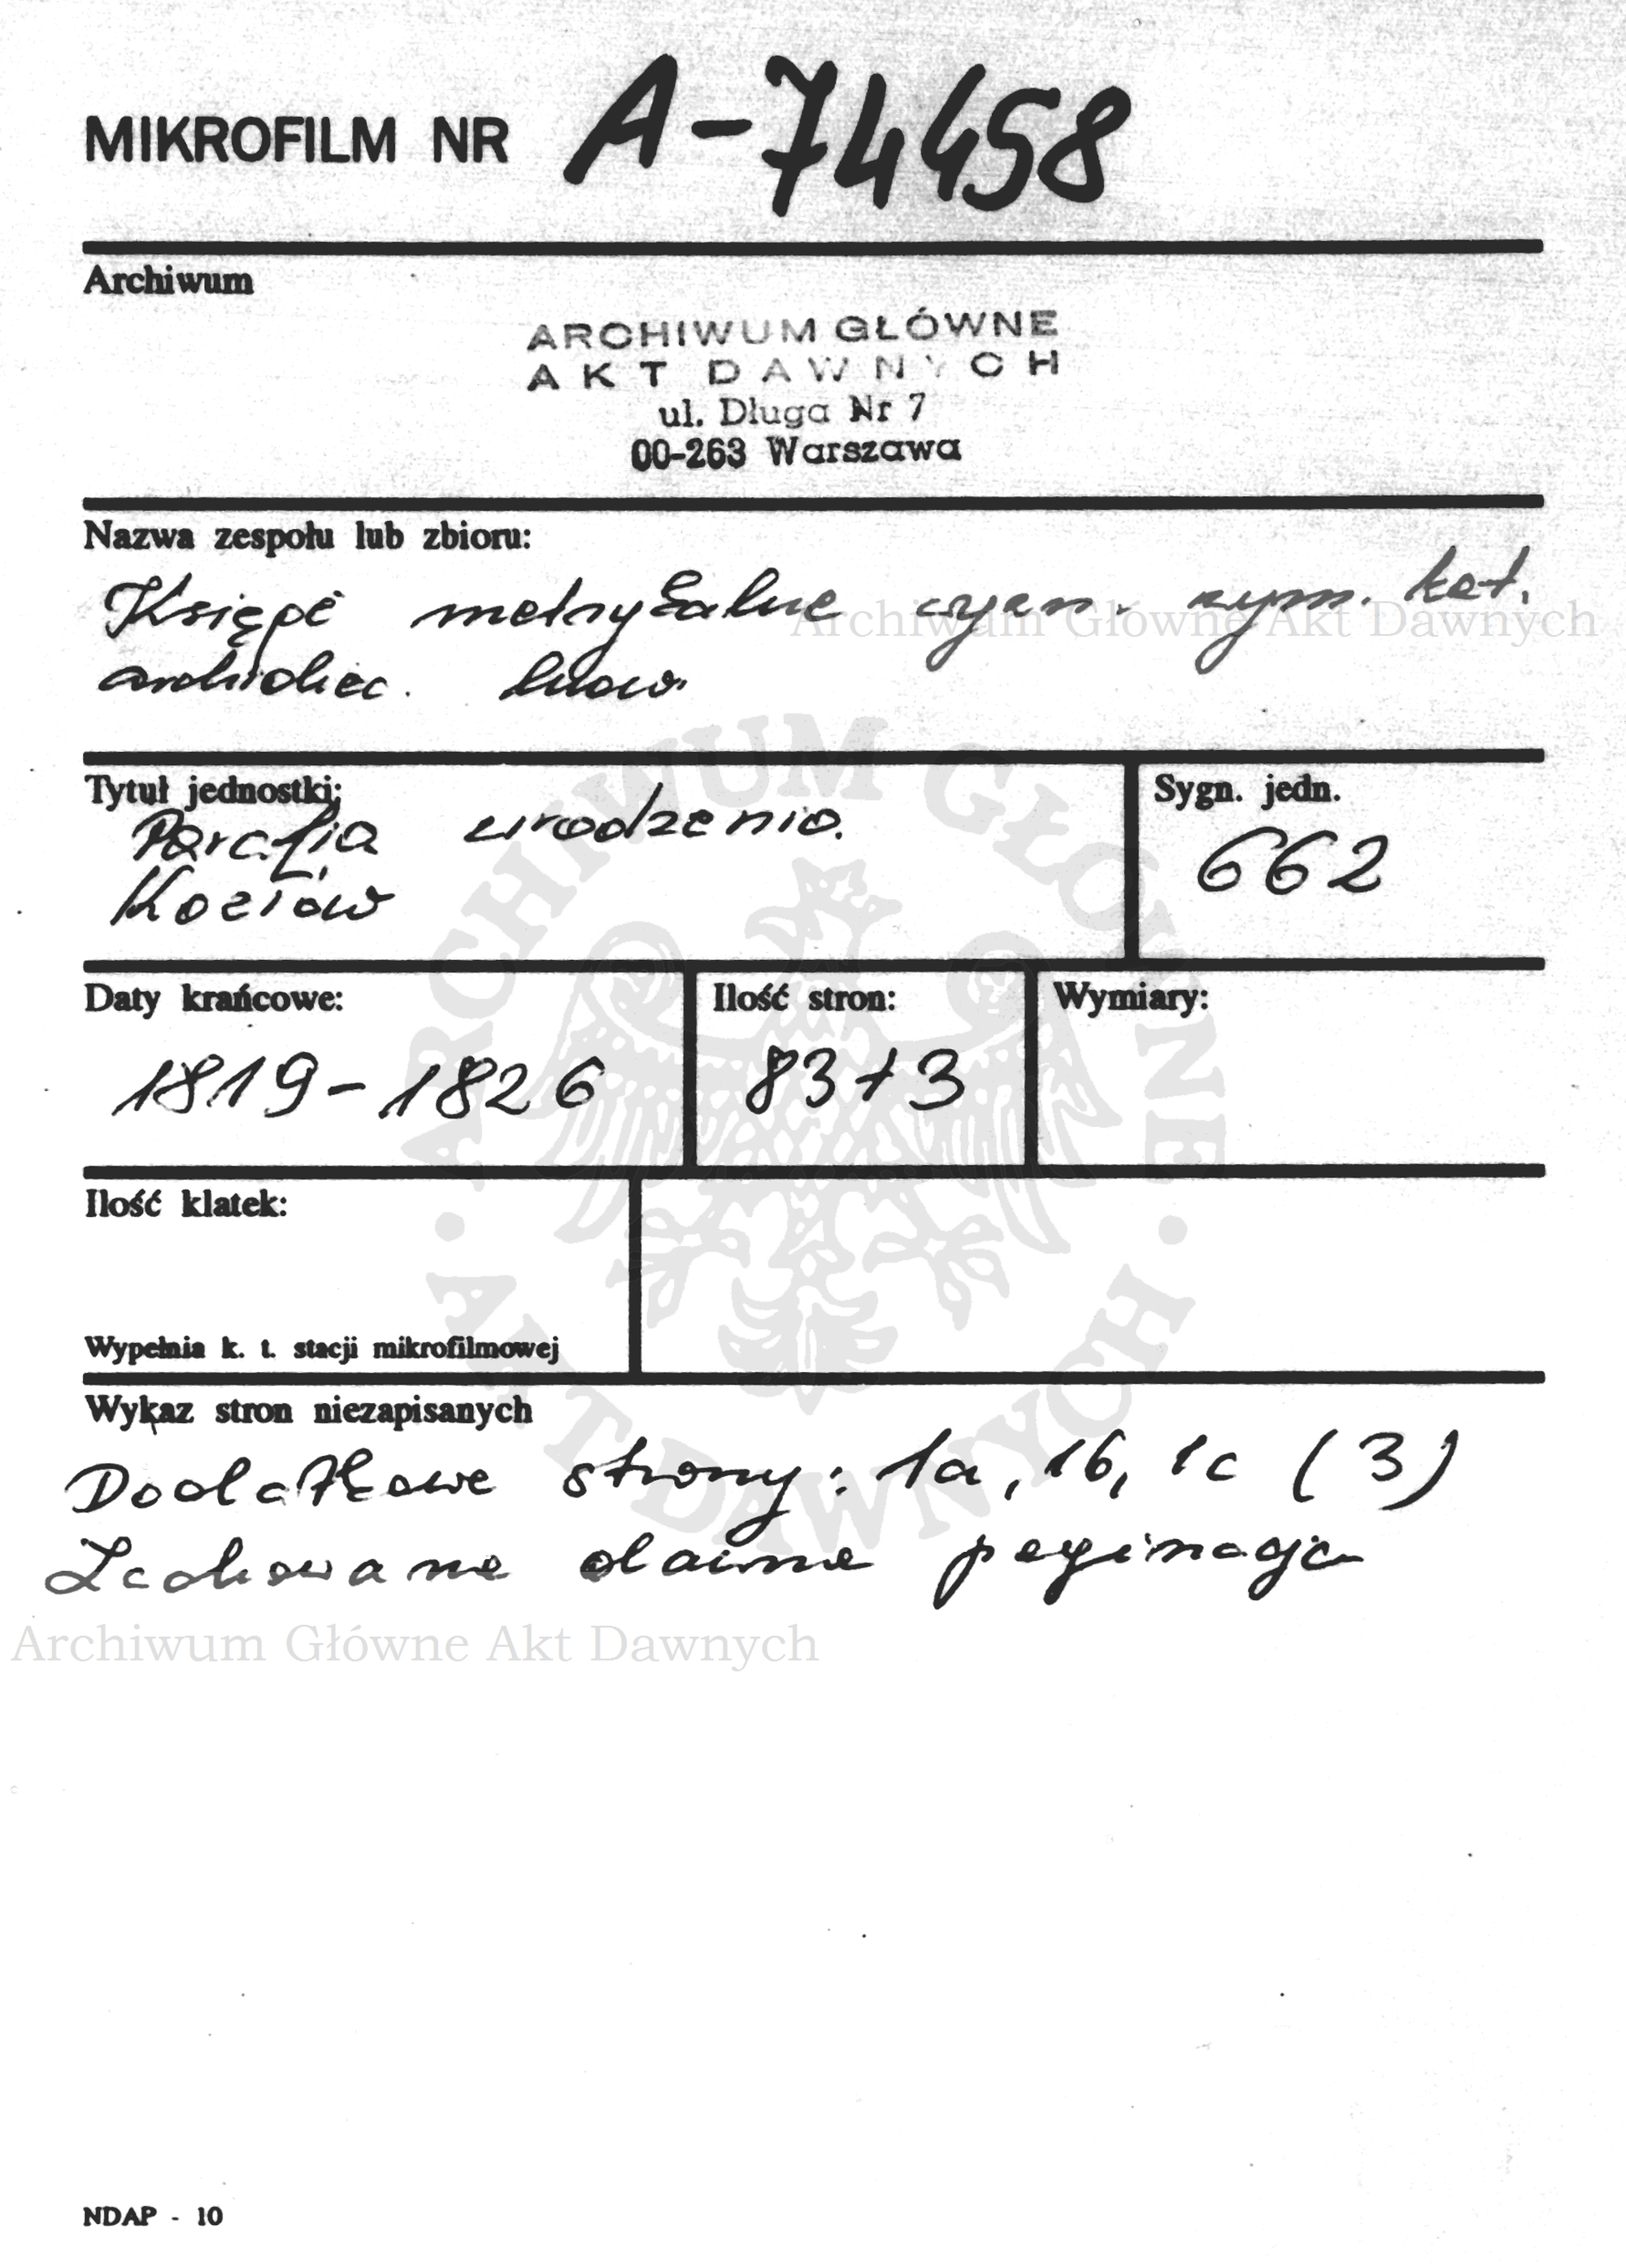 MIKROFILM NR A-74458
Archiwum
ARCHIWUM GŁÓWNE
AKT DAWNYCH
ul. Długa Nr 7
00-263 Warszawa
Nazwa zespołu lub zbioru:
Księgi metrykalne wyzn. rzym. kat.
Archiwum Główne Akt Dawnych
archidiec. lwow.
Tytuł jednostki:
Parafia urodzenia.
Kozłów
Sygn. jedn.
662
Daty krańcowe:
1819-1826
Ilość stron:
83+3
Wymiary:
Ilość klatek:
Wypełnia k. t. stacji mikrofilmowej
ARCHIWUM GŁÓWNE · AKT DAWNYCH ·
Wykaz stron niezapisanych
Dodatkowe strony: 1a, 1b, 1c (3)
Zachowana dawna paginacja
Archiwum Główne Akt Dawnych
NDAP - 10